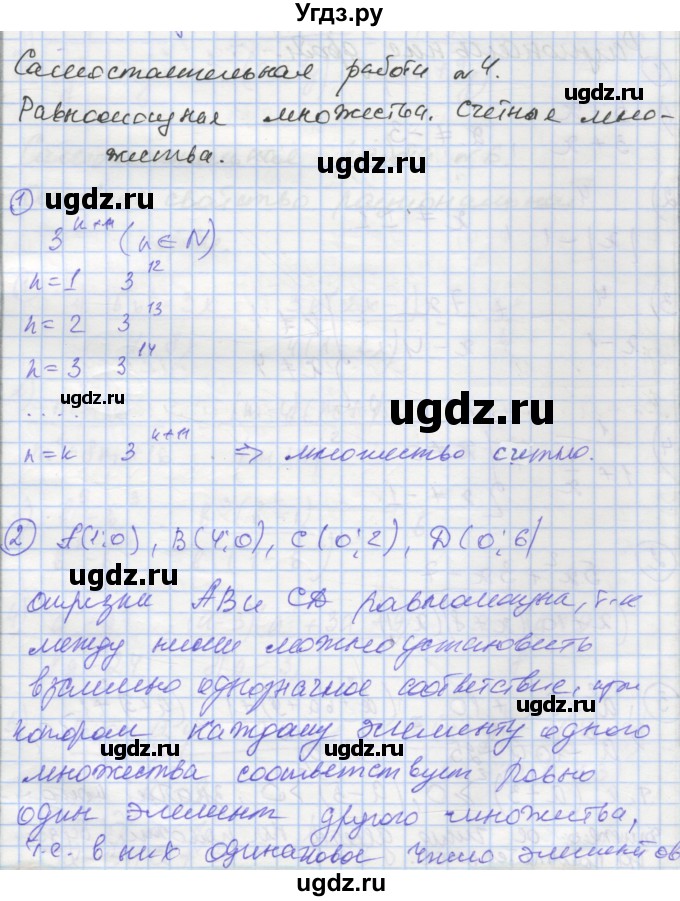 Угдз.ру
Самостоятельная работа №4.
Равномощные множества. Счетные мно-
жества.
ugdz.ru
ugdz.ru
① ugdz.ru
3^{n+11} (n ∈ N)
n=1 3^{12}
n=2 3^{13}
n=3 3^{14}
ugdz.ru
ugdz.ru
....
n=k 3^{k+11} ⇒ множество счетно.
ugdz.ru
② A(1;0), B(4;0), C(0;2), D(0;6)
ugdz.ru
отрезки AB и CD равномощны, т.к
между ними можно установить
взаимно однозначное соответствие, при
ugdz.ru
котором каждому элементу одного
ugdz.ru
множества соответствует ровно
один элемент другого множества,
ugdz.ru
т.е. в них одинаковое число элементов
ugdz.ru
ugdz.ru